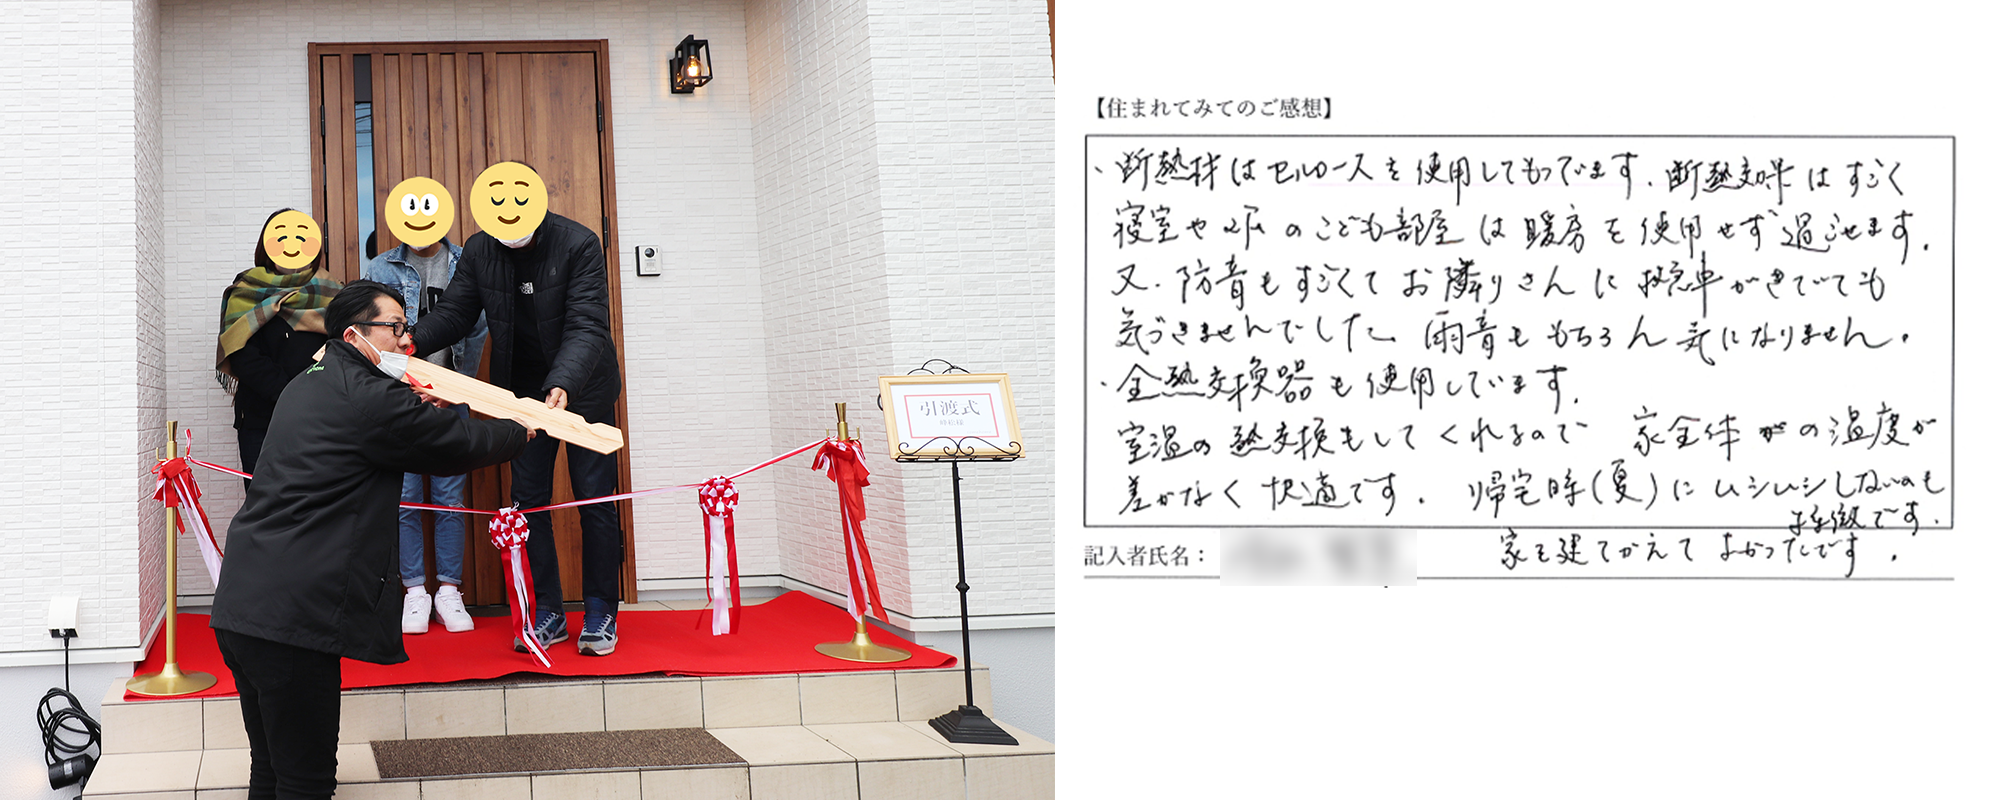 引渡式
【住まれてみてのご感想】
、断熱材はセルロースを使用してもっています。断熱効果はすごく
寝室や2Fのこども部屋は暖房を使用せず過ごせます。
又、防音もすごくてお隣りさんに救急車がきていても
気づきませんでした。雨音ももちろん気になりません。
・全熱交換器も使用しています。
室温の熱交換もしてくれるので 家全体の温度が
差がなく快適です。帰宅時(夏)にムシムシしないのも
特徴です。
家を建てかえてよかったです。
記入者氏名：